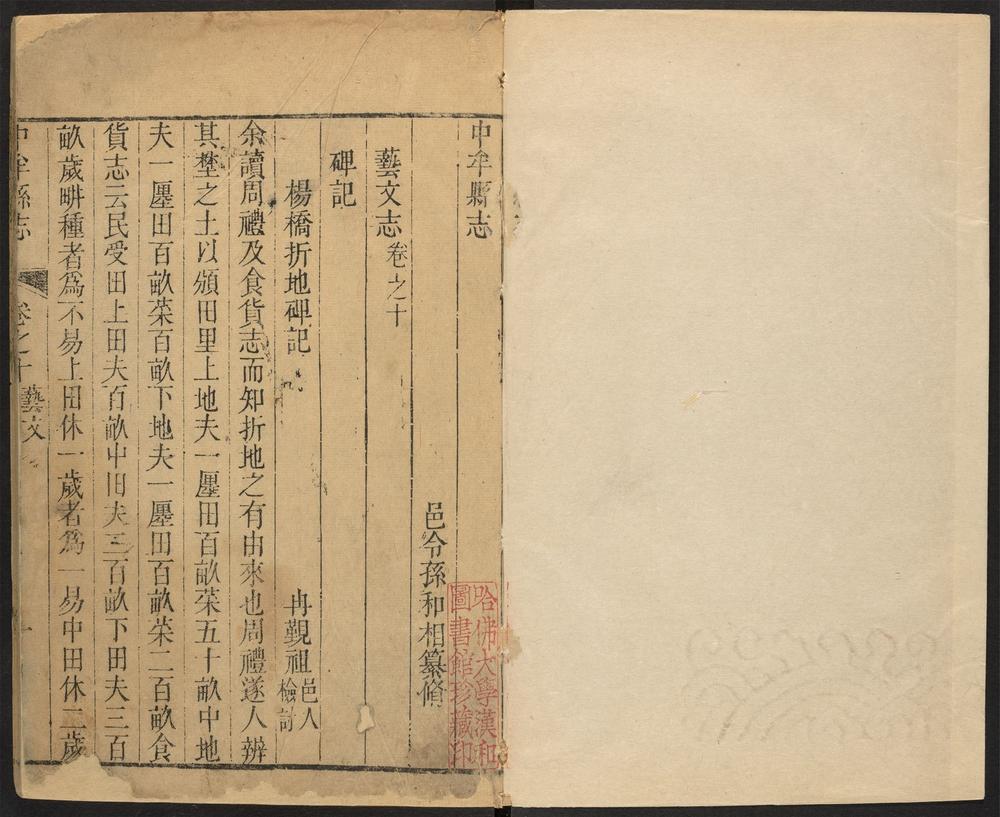 中牟縣志
邑令孫和相纂脩
藝文志卷之十
碑記
楊橋折地碑記
冉覲祖邑人檢討
余讀周禮及食貨志而知折地之有由來也周禮遂人辨
其壄之土以頒田里上地夫一廛田百畝萊五十畝中地
夫一廛田百畝萊百畝下地夫一廛田百畝萊二百畝食
貨志云民受田上田夫百畝中田夫二百畝下田夫三百
畝歲畊種者爲不易上田休一歲者爲一易中田休二歲
中牟縣志 卷之十藝文 一
哈佛大學漢和
圖書館珍藏印